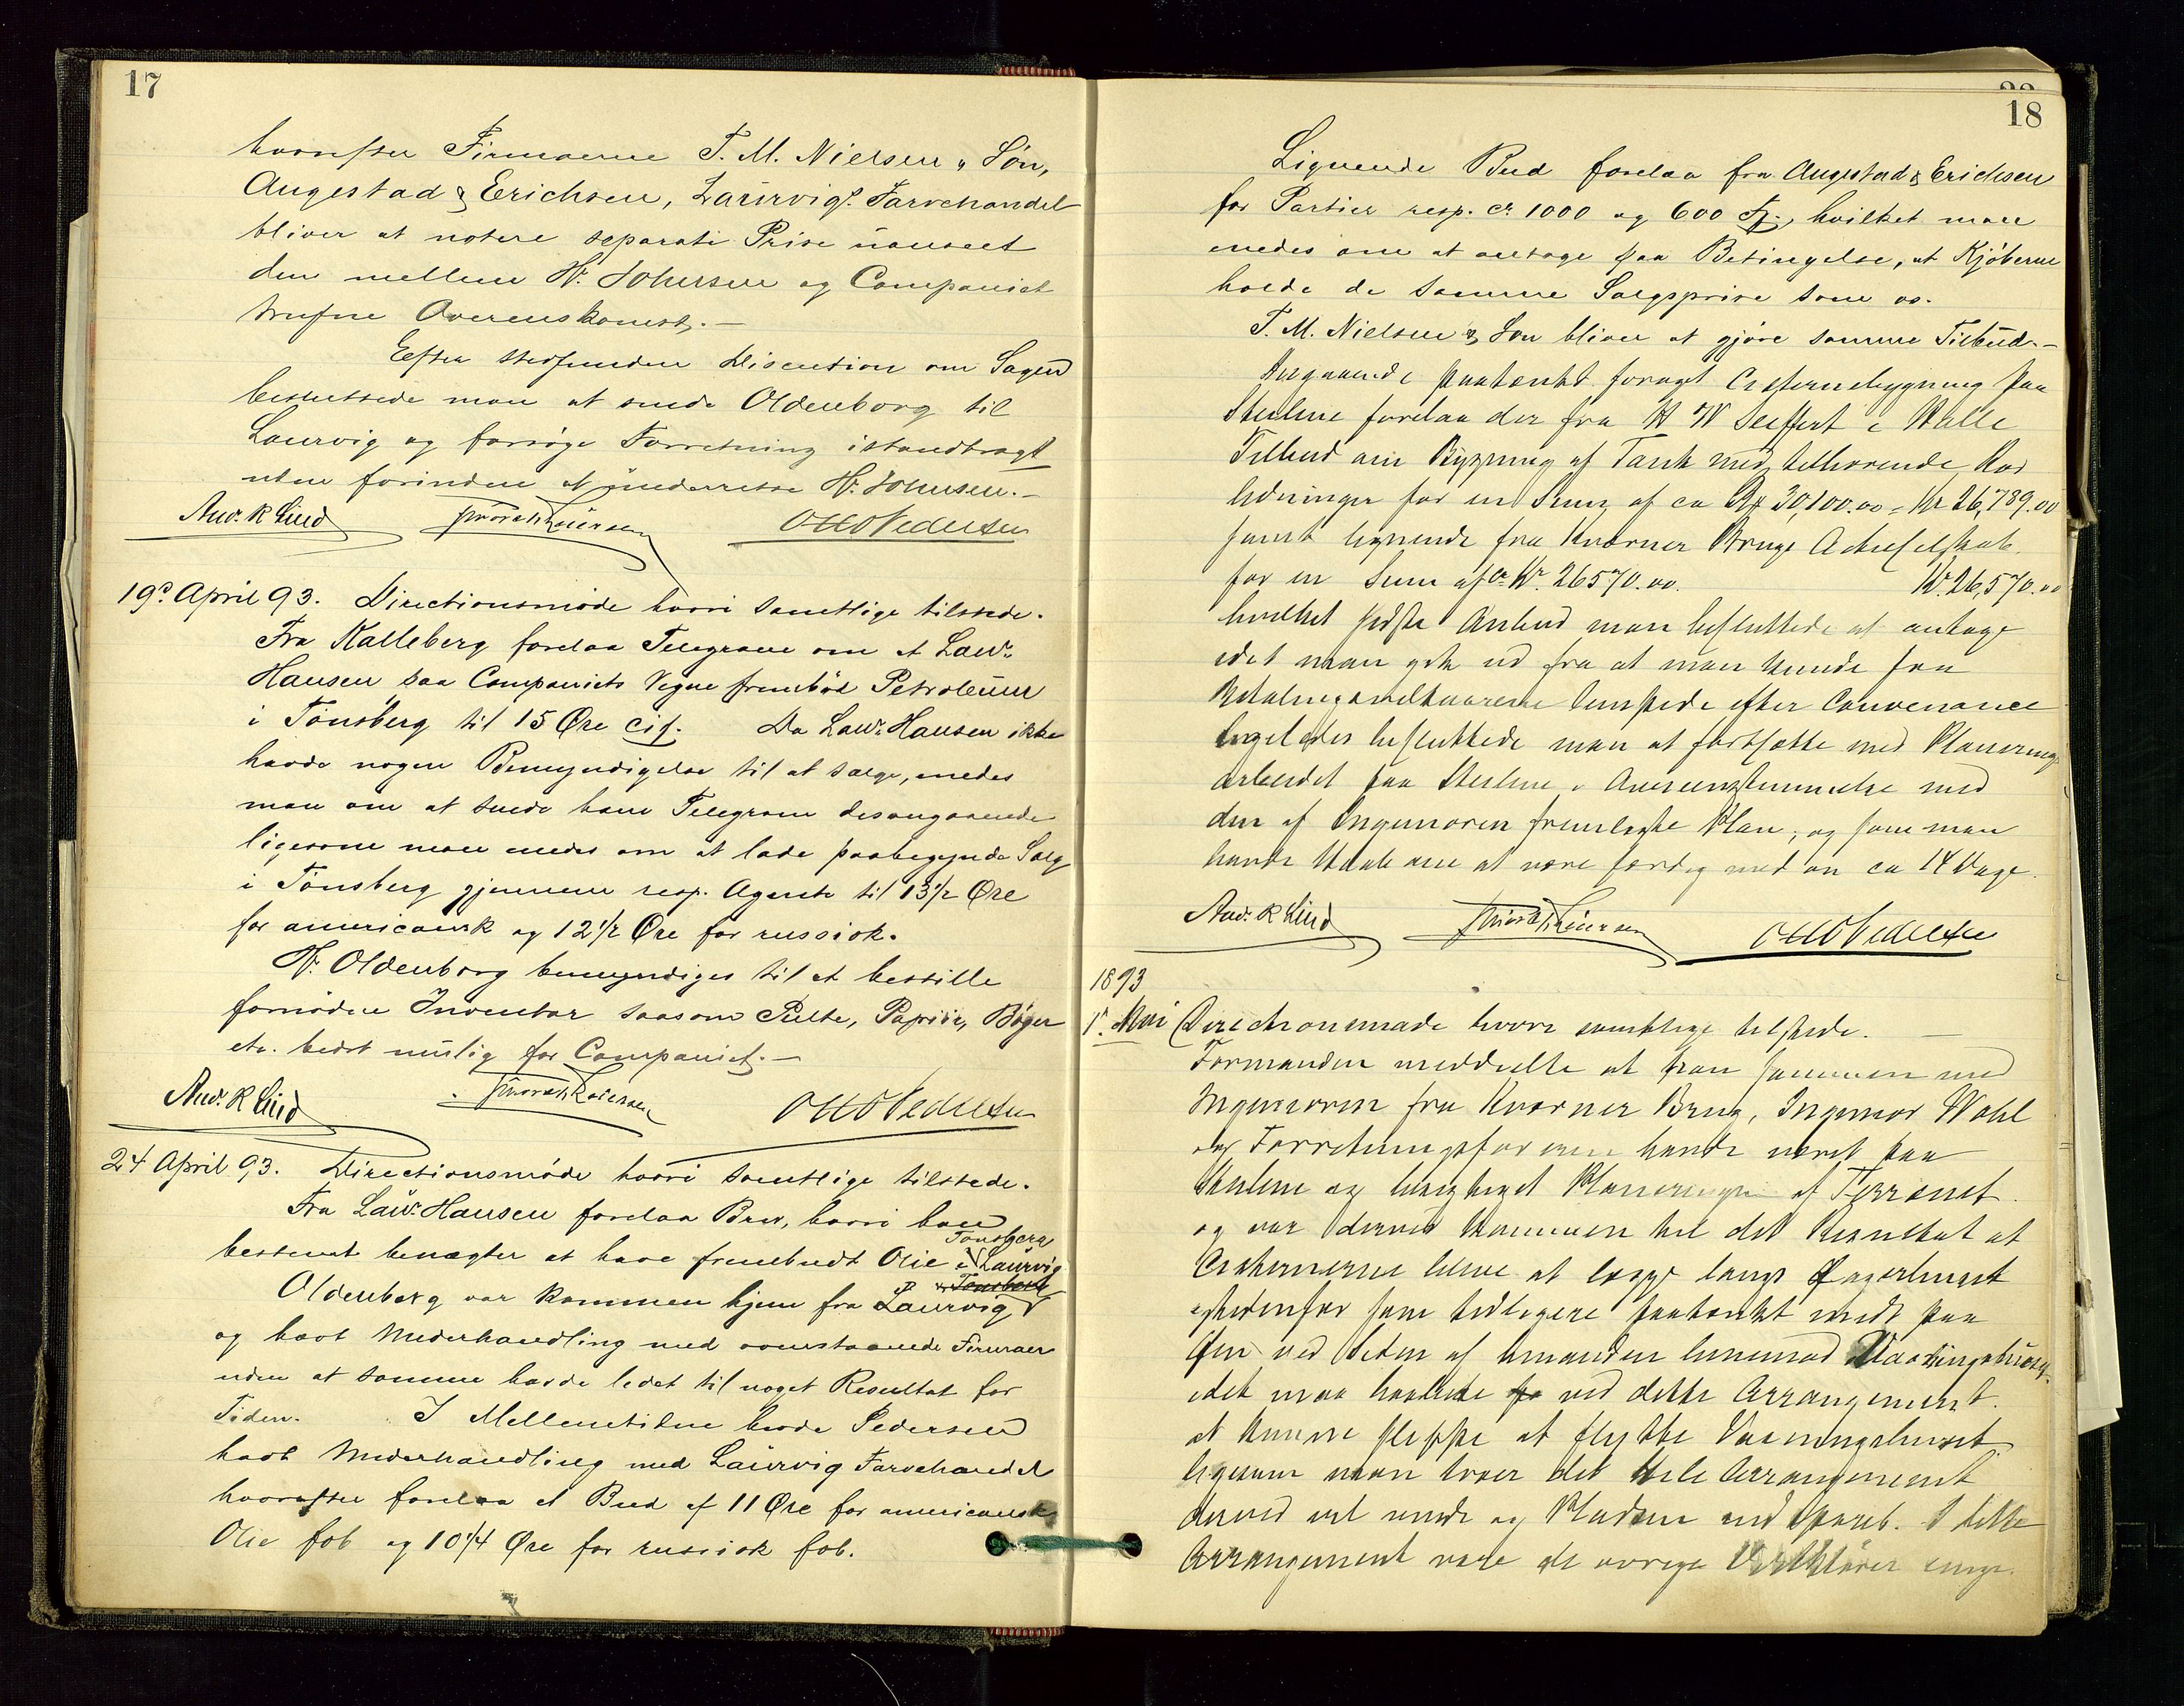 17
hvorefter Firmaerne T. M. Nielsen & Søn,
Augestad & Erichsen, Laurvigs Farvehandel
bliver at notere separate Prise uanseet
den mellem Hr. Johnsen og Companiet
trufne Overenskomst.—
Efter stedfunden Discution om Sagen
besluttede man at sende Oldenborg til
Laurvig og forsøge Forretning istandbragt
uden forinden at underrette Hr. Johnsen.—
And. R Lind Otto Pedersen
19de April 93. Directionsmøde hvori samtlige tilstede.
Fra Kalleberg forelaa Telegram om at Laur.
Hansen paa Companiets Vegne frembød Petroleum
i Tønsberg til 15 Øre cif. Da Laur. Hansen ikke
havde nogen Bemyndigelse til at sælge, enedes
man om at sende ham Telegram desangaaende
ligesom man enedes om at lade paabegynde Salg
i Tønsberg gjennem resp. Agente til 13½ Øre
for americansk og 12½ Øre for russisk.
Hr. Oldenborg bemyndiges til at bestille
fornøden Inventar saasom Pulte, Papirer, Bøger
etc. bedst mulig for Companiet.—
And. R Lind Otto Pedersen
24 April 93. Directionsmøde hvori samtlige tilstede.
Fra Laur. Hansen forelaa Brev, hvori han
bestemt benægter at have frembudt Olie i Tønsberg Laurvig
Oldenborg var kommen hjem fra Laurvig & Tønsberg
og havt Underhandling med ovenstaaende Firmaer
uden at samme havde ledet til noget Resultat for
Tiden. I Mellemtiden havde Pedersen
havt Underhandling med Laurvig Farvehandel
hvorefter forelaa et Bud af 11 Øre for americansk
Olie fob og 10¼ Øre for russisk fob.
18
Lignende Bud forelaa fra Augestad & Erichsen
for Partier resp. ca. 1000 og 600 F., hvilket man
enedes om at antage paa Betingelse, at Kjøberne
holde de samme Salgsprise som os.
T. M. Nielsen & Søn bliver at gjøre samme Tilbud.—
Angaaende paatænkt foraget Cisternebygning paa
Steilene forelaa der fra H W Seiffert i Halle
Tilbud om Bygning af Tank med tilhørende Rør
ledninger for en Sum af ca Rm 30,100.00 = Kr 26,789.00
samt lignende fra Kværner Brugs Actieselskab.
for en Sum af ca Kr. 26570.00. Kr. 26,570.00
hvilket sidste Anbud man besluttede at antage
idet man gik ud fra at man kunde faa
Betalingsvilkaarene lempede efter Convenance
Ligeledes besluttede man at fortsætte med Planerings
arbeidet paa Steilene i Overensstemmelse med
den af Ingeniøren fremlagte Plan, og som man
havde Haab om at være færdig med om ca 14 Dage.
And. R Lind Otto Pedersen
1893
1. Mai Directionsmøde hvori samtlige tilstede.
Formanden meddelte at han sammen med
Ingeniøren fra Kværner Brug, Ingeniør Wahl
og Forretningsføreren havde været paa
Steilene og besigtiget Planeringen af Terrænet
og var derved kommen til det Resultat at
Cisternerne blive at lægge langs Lagerhuset
istedenfor som tidligere paatænkt midt paa
Øen ved Siden af hinanden henimod Vaaningshuset,
idet man haabede ved dette Arrangement.
at kunne slippe at flytte Vaaningshuset
ligesom man tror det hele Arrangement
derved vil vinde og Pladsen end spares. I dette
Arrangement vare de øvrige Direktører enige.